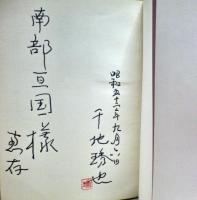 南部亘国様
恵存
昭和五十二年九月六日
千地琇也